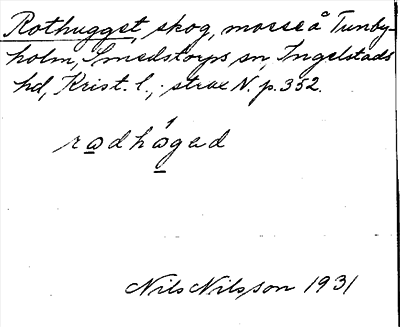 Rothugget, skog, mosse å Tunby-
holm, Smedstorps sn, Ingelstads
hd, Krist. l.; strax N. p. 352.
radhágad
Nils Nilsson 1931